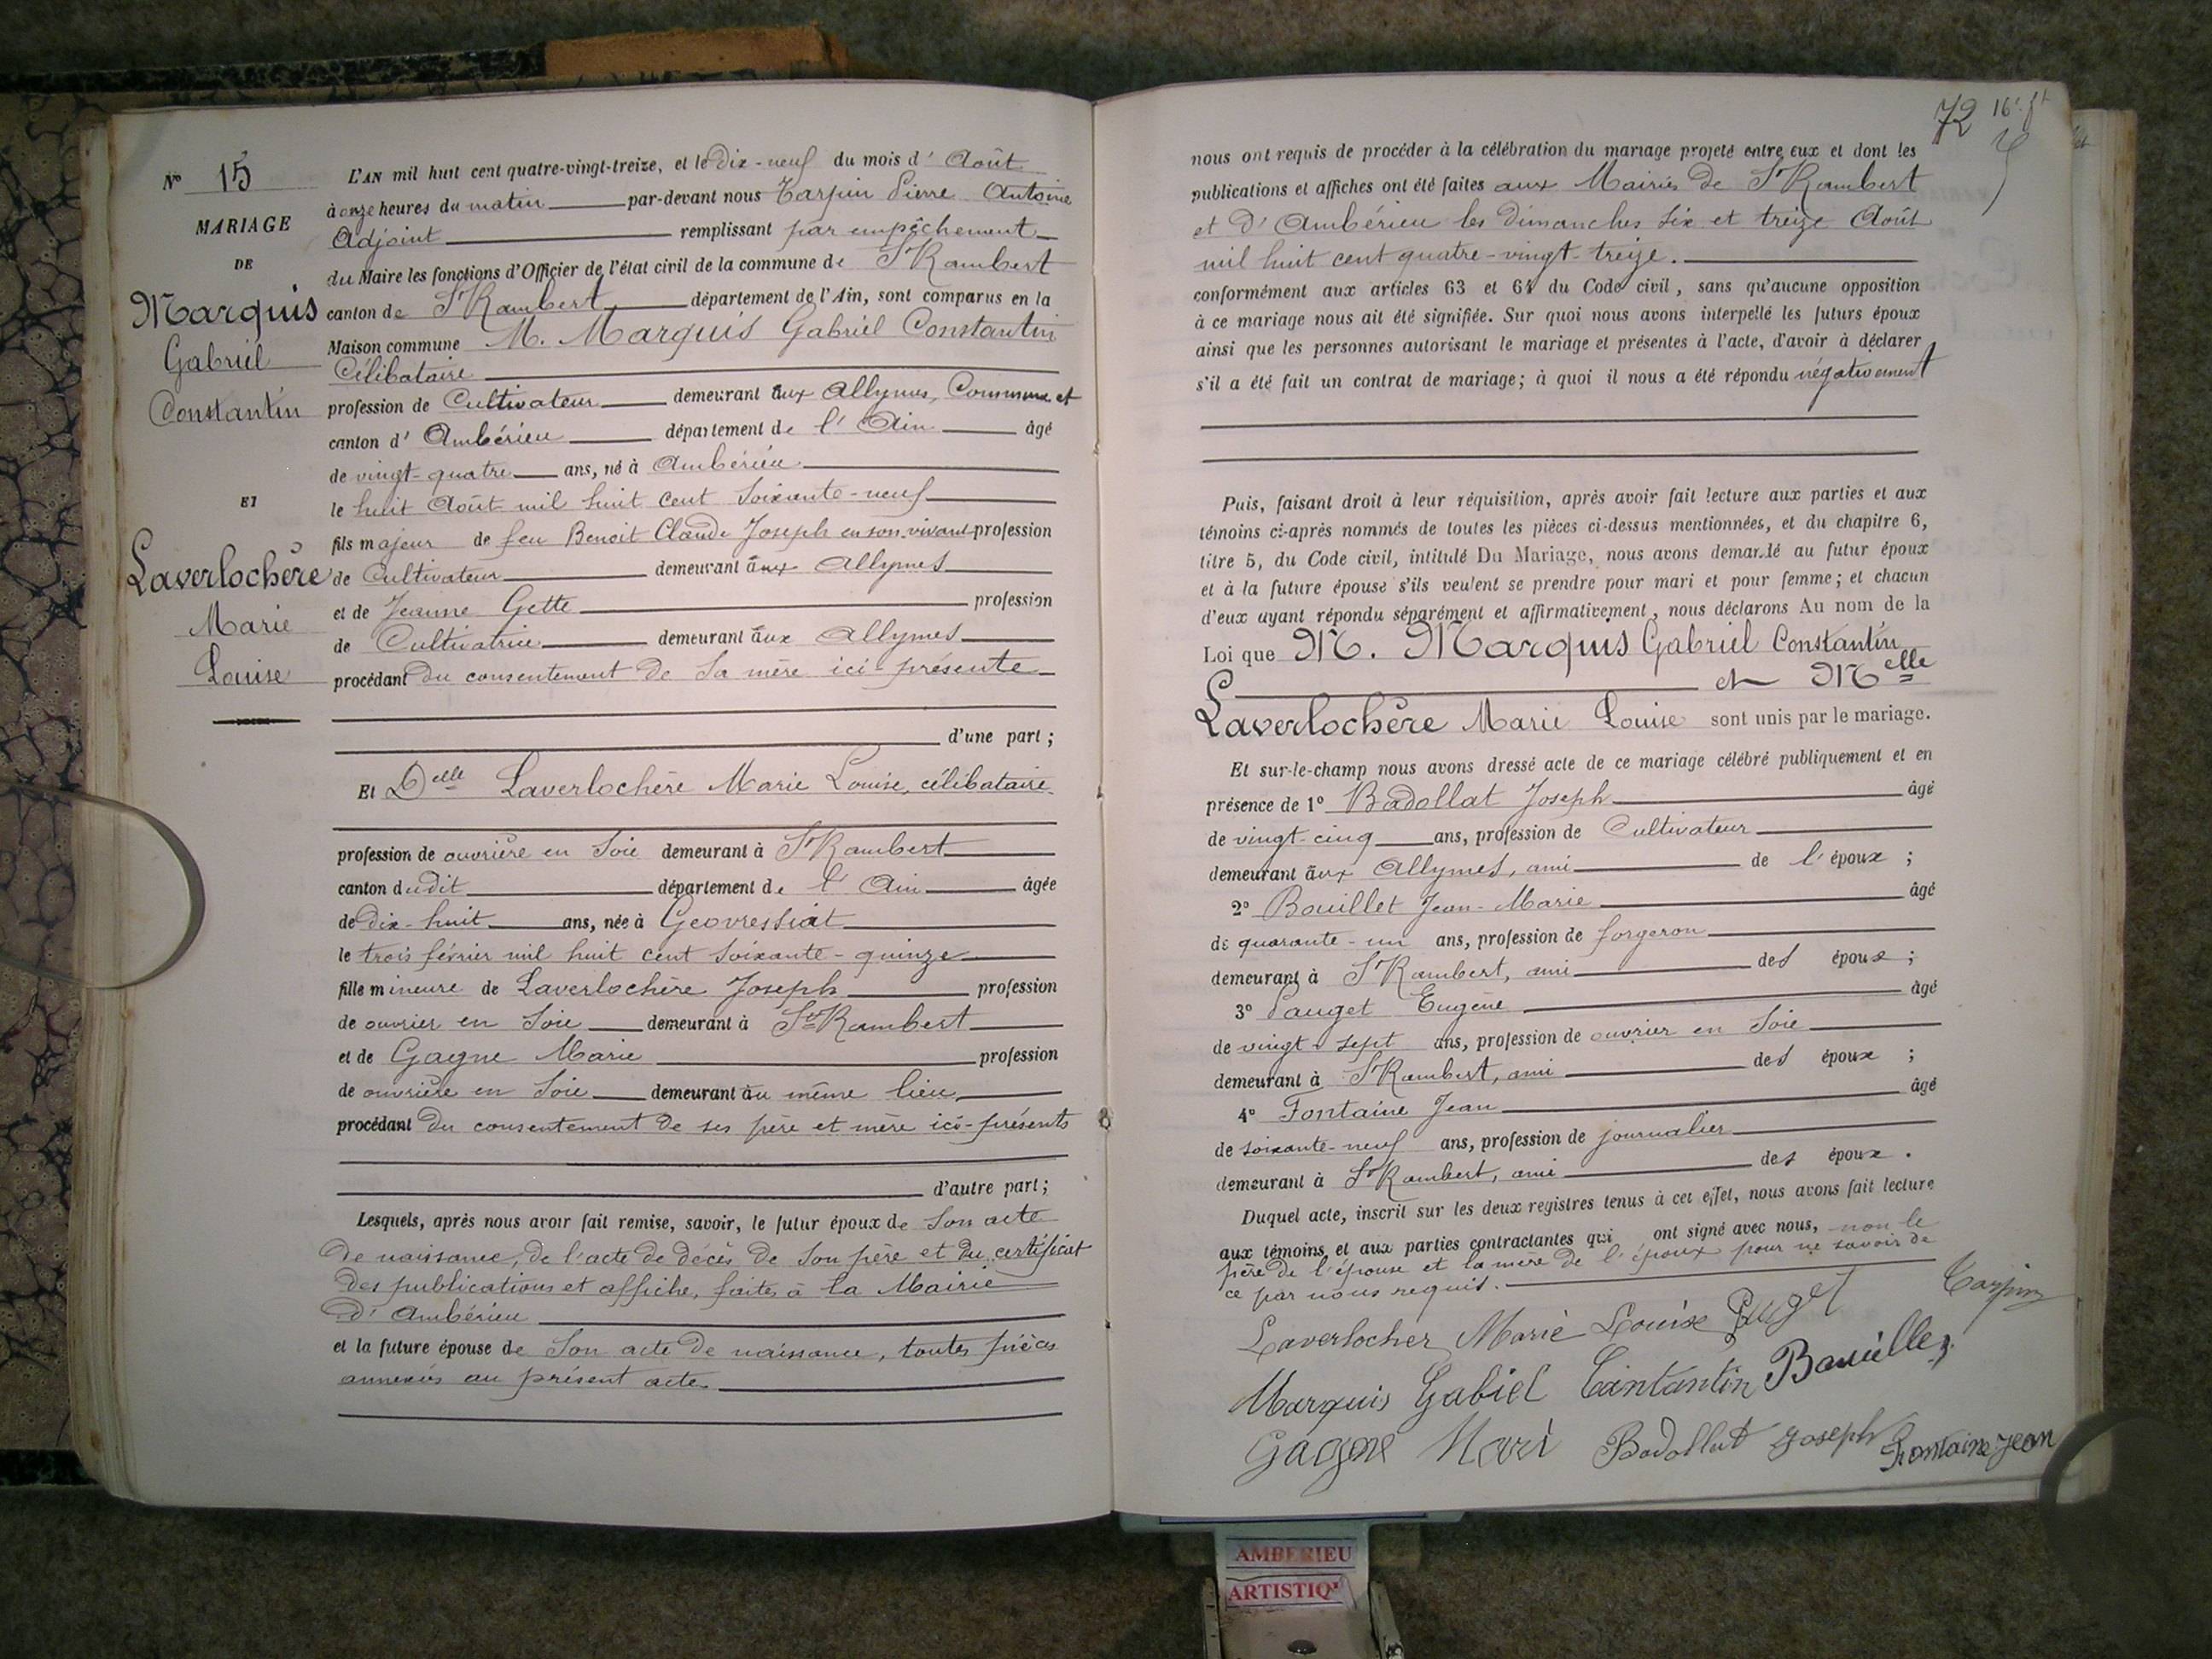 N° 15
MARIAGE
DE
Marquis
Gabriel
Constantin
ET
Laverlochère
Marie
Louise
L'AN mil huit cent quatre-vingt-treize, et le Dix-neuf du mois d'Août
à onze heures du matin par-devant nous Tarpin Pierre Antoine
Adjoint remplissant par empêchement
du Maire les fonctions d'Officier de l'état civil de la commune de St Rambert
canton de St Rambert département de l'Ain, sont comparus en la
Maison commune M. Marquis Gabriel Constantin
Célibataire
profession de Cultivateur demeurant aux Allymes, Commune et
canton d'Ambérieu département de l'Ain âgé
de vingt-quatre ans, né à Ambérieu
le huit Août mil huit cent soixante-neuf
fils majeur de feu Benoit Claude Joseph en son vivant profession
de Cultivateur demeurant aux Allymes
et de Jeanne Gette profession
de Cultivatrice demeurant aux Allymes
procédant du consentement de sa mère ici-présente
d'une part ;
Et Delle Laverlochère Marie Louise, célibataire
profession de ouvrière en soie demeurant à St Rambert
canton dudit département de l'Ain âgée
de Dix-huit ans, née à Géovressiat
le trois février mil huit cent soixante-quinze
fille mineure de Laverlochère Joseph profession
de ouvrier en soie demeurant à St Rambert
et de Gagne Marie profession
de ouvrière en soie demeurant au même lieu
procédant du consentement de ses père et mère ici-présents
d'autre part ;
Lesquels, après nous avoir fait remise, savoir, le futur époux de son acte
de naissance, de l'acte de décès de son père et du certificat
des publications et affiche, faites à la Mairie
d'Ambérieu
et la future épouse de son acte de naissance, toutes pièces
annexées au présent acte
72 16e ft
nous ont requis de procéder à la célébration du mariage projeté entre eux et dont les
publications et affiches ont été faites aux Mairies de St Rambert
et d'Ambérieu les dimanches six et treize Août
mil huit cent quatre-vingt-treize.
conformément aux articles 63 et 64 du Code civil, sans qu'aucune opposition
à ce mariage nous ait été signifiée. Sur quoi nous avons interpellé les futurs époux
ainsi que les personnes autorisant le mariage et présentes à l'acte, d'avoir à déclarer
s'il a été fait un contrat de mariage ; à quoi il nous a été répondu négativement
Puis, faisant droit à leur réquisition, après avoir fait lecture aux parties et aux
témoins ci-après nommés de toutes les pièces ci-dessus mentionnées, et du chapitre 6,
titre 5, du Code civil, intitulé Du Mariage, nous avons demandé au futur époux
et à la future épouse s'ils veulent se prendre pour mari et pour femme ; et chacun
d'eux ayant répondu séparément et affirmativement, nous déclarons Au nom de la
Loi que M. Marquis Gabriel Constantin
et Melle
Laverlochère Marie Louise sont unis par le mariage.
Et sur-le-champ nous avons dressé acte de ce mariage célébré publiquement et en
présence de 1° Badollat Joseph âgé
de vingt-cinq ans, profession de Cultivateur
demeurant aux Allymes, ami de l'époux ;
2° Bouillet Jean-Marie âgé
de quarante-un ans, profession de forgeron
demeurant à St Rambert, ami des époux ;
3° Pauget Eugène âgé
de vingt-sept ans, profession de ouvrier en soie
demeurant à St Rambert, ami des époux ;
4° Fontaine Jean âgé
de soixante-neuf ans, profession de journalier
demeurant à St Rambert, ami des époux.
Duquel acte, inscrit sur les deux registres tenus à cet effet, nous avons fait lecture
aux témoins et aux parties contractantes qui ont signé avec nous, non le
père de l'épouse et la mère de l'époux pour ne savoir de
ce par nous requis.
Tarpin
Laverlocher Marie Louise
Marquis Gabiel Cantantin Bouillez
Gagne Mari Badollat Joseph Fontaine Jean
AMBERIEU
ARTISTIQ